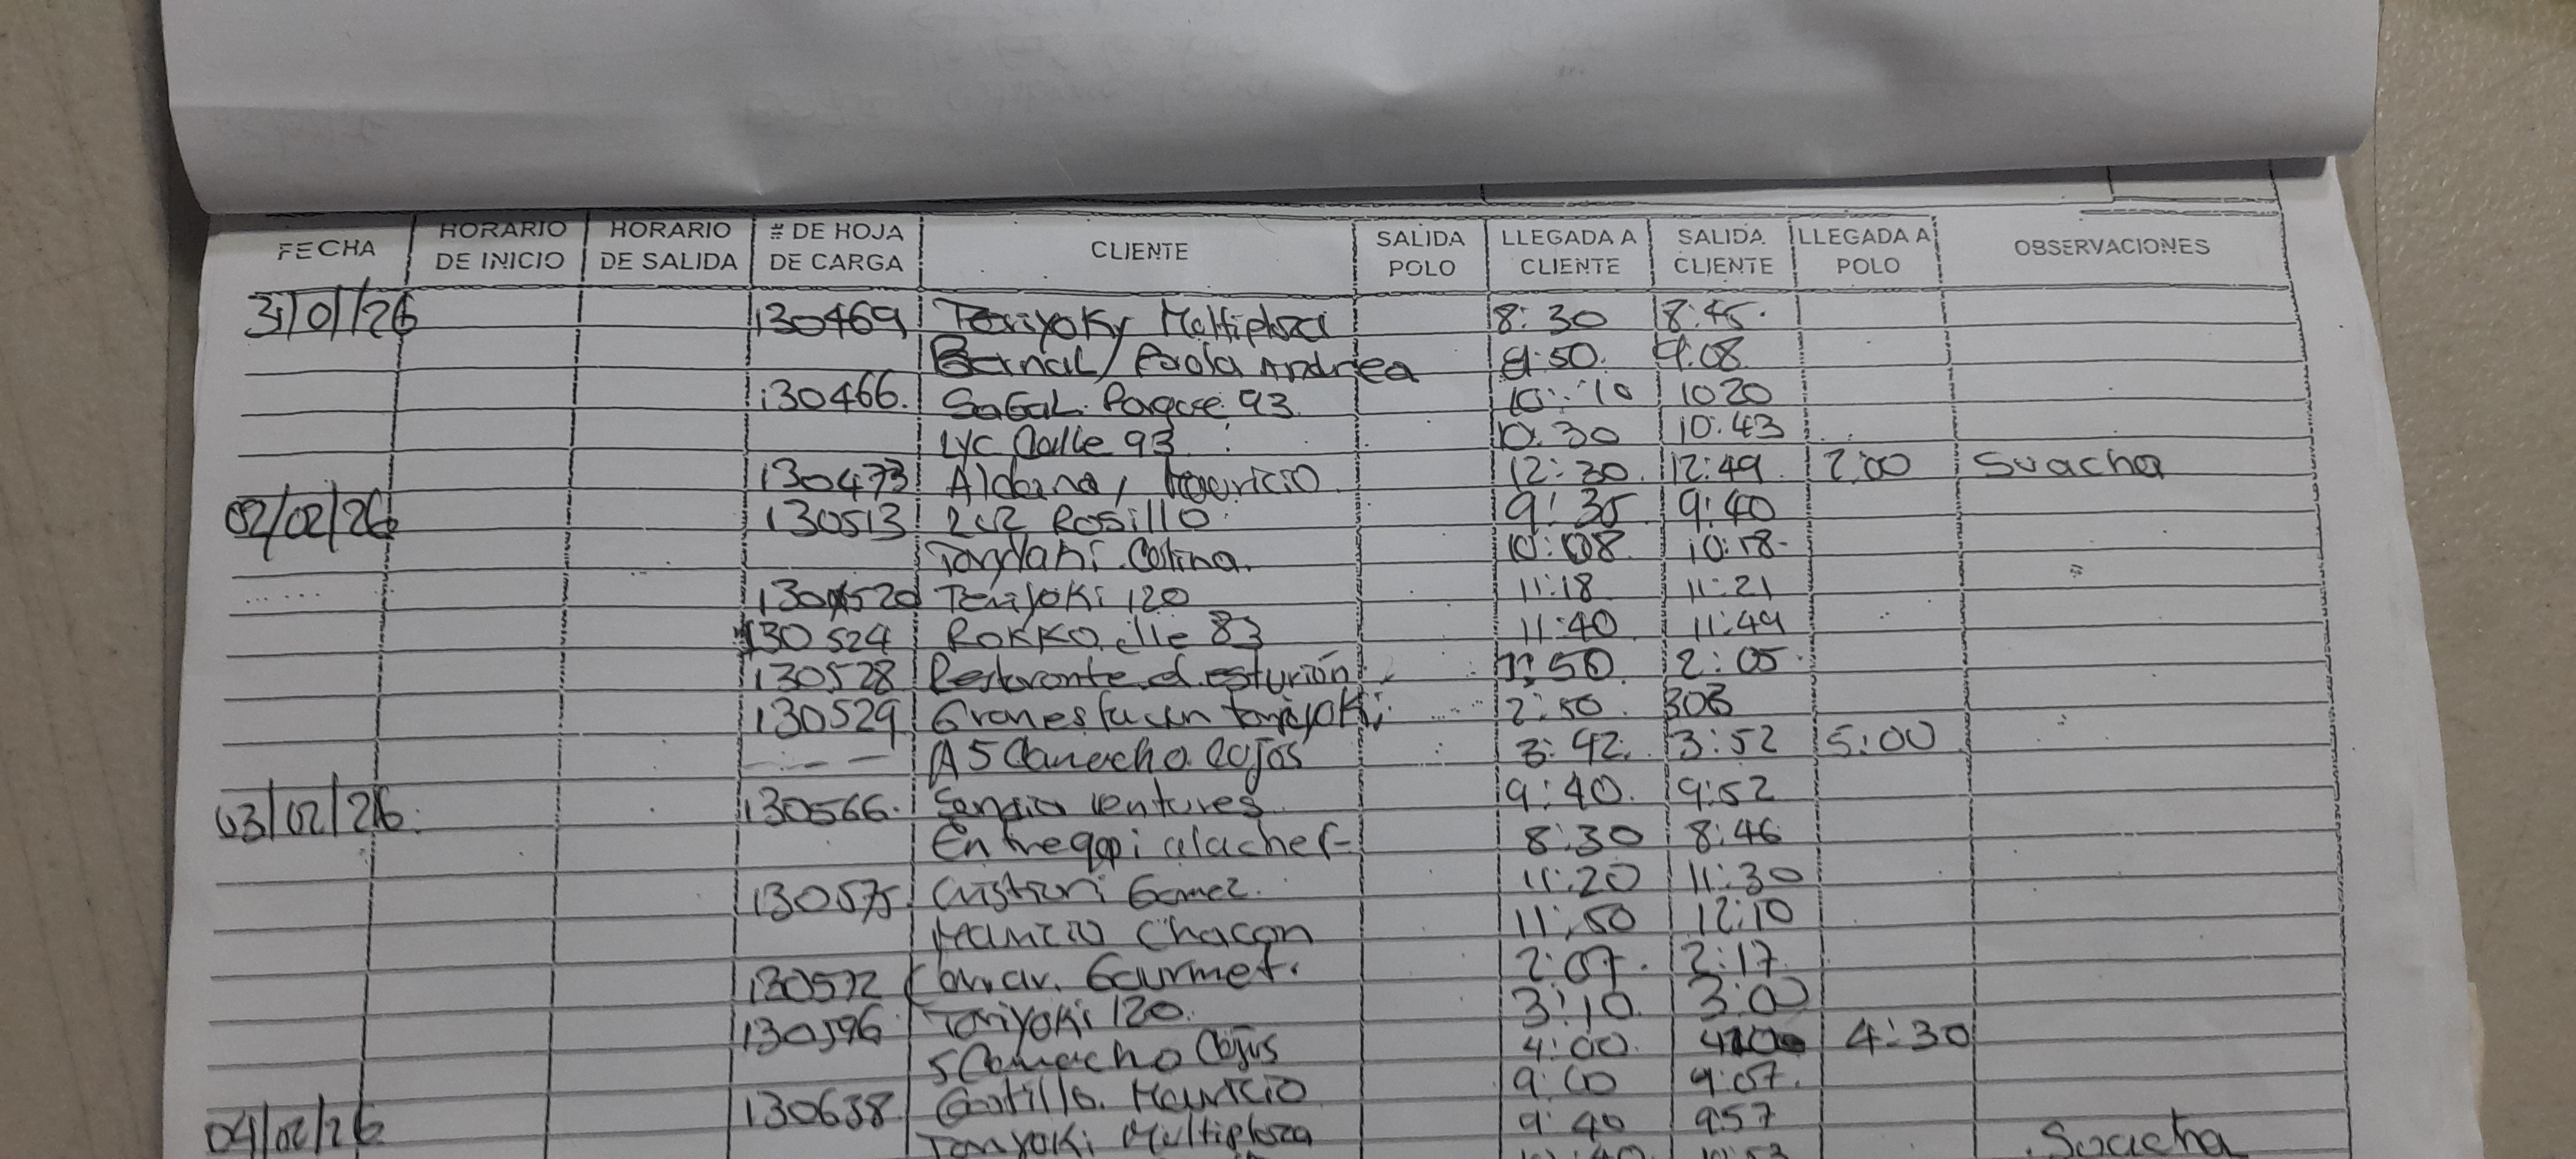 FECHA HORARIO DE INICIO HORARIO DE SALIDA # DE HOJA DE CARGA CLIENTE SALIDA POLO LLEGADA A CLIENTE SALIDA CLIENTE LLEGADA A POLO OBSERVACIONES
31/01/26 130469 Teriyoky Multiplaza 8:30 8:45
Bernal / Paola Andrea 8:50 9:08
130466 SaGaL Parque 93 10:10 1020
LyC Calle 93 10:30 10:43
130473 Aldana, Mauricio 12:30 12:49 2:00 Suacha
02/02/26 130513 Rosillo 9:35 9:40
Teriyaki Colina 10:08 10:18
130520 Teriyoki 120 11:18 11:21
130524 ROKKO clle 83 11:40 11:49
130528 Restorante el esturión 1:50 2:05
130529 2:50 308
A 5 Camacho Cojos 3:42 3:52 5:00
03/02/26 130566 ventures 9:40 9:52
alachef 8:30 8:46
130575 Cristian Gomez 11:20 11:30
Mauricio Chacon 11:50 12:10
130572 Gourmet 2:07 2:17
130596 Teriyoki 120 3:10 3:00
5 Camacho Cojos 4:00 4:30
04/02/26 130638 Mauricio 9:00 9:07
Teriyoki Multiplaza 9:40 9:57
Suacha